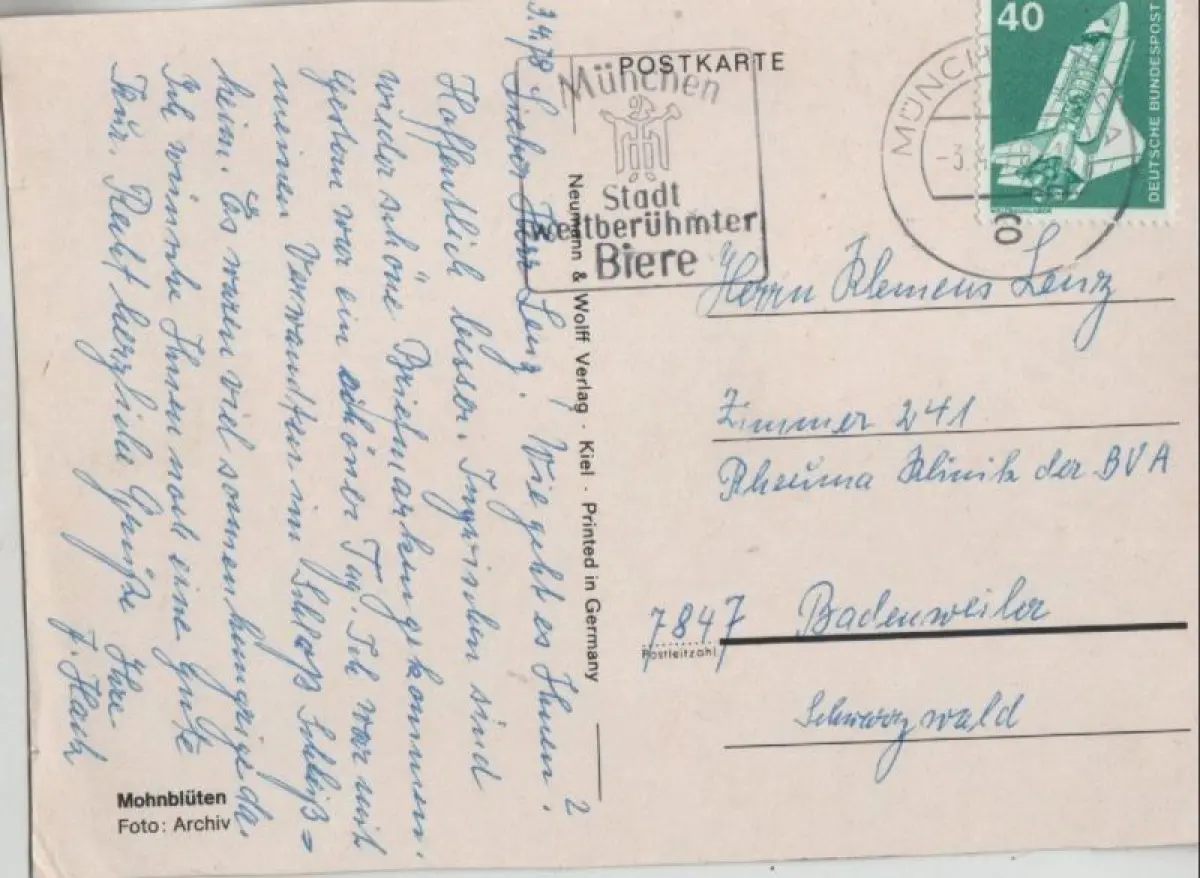 POSTKARTE
40
DEUTSCHE BUNDESPOST
München
Stadt
weltberühmter
Biere
MÜNCH
-3.
Herrn Klemens Lenz
Zimmer 241
Rheuma Klinik der BVA
7847 Badenweiler
Postleitzahl
Schwarzwald
Neumann & Wolff Verlag · Kiel · Printed in Germany
3.4.78
Lieber Herr Lenz. Wie geht es Ihnen.
Hoffentlich besser. Inzwischen sind
wieder schöne Briefmarken gekommen.
Gestern war ein schöner Tag. Ich war mit
meinen Verwandten im Schloß Schleiß=
heim. Es waren viel sonnenhungrige da.
Ich wünsche Ihnen noch eine Gute
Kur. Recht herzliche Grüße Ihre
2
Mohnblüten
Foto: Archiv